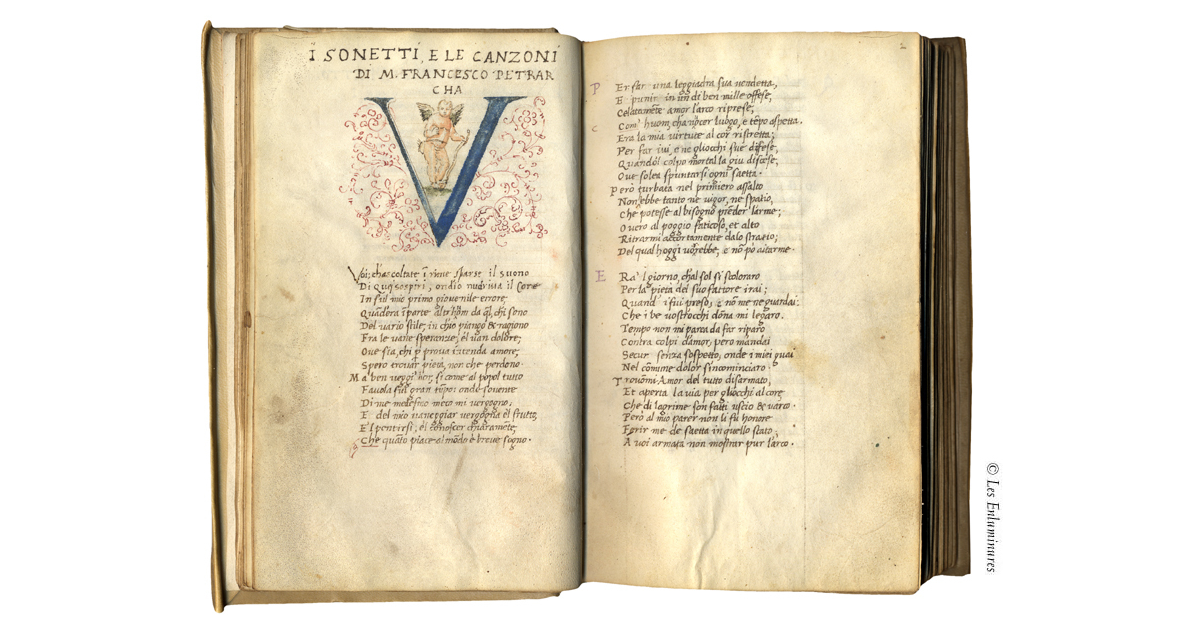 I SONETTI, E LE CANZONI
DI M. FRANCESCO PETRAR
CHA
V
Voi; ch'ascoltate ĩ rime sparse il suono
Di quei sospiri, ond'io nudriva il core
In sul mio primo giovenile errore;
Quand'era ĩ parte altr'hom da ql, ch'i sono
Del vario stile; in ch'io piango & ragiono
Fra le vane speranze, e'l van dolore;
Ove sia, chi p prova intenda amore;
Spero trovar pieta, non che perdono.
Ma ben veggi'hor, si come al popol tutto
Favola fui gran tẽpo: onde sovente
Di me medesmo meco mi vergogno,
E del mio vaneggiar vergogna è'l frutto,
E'l pentirsi, e'l conoscer chiaramẽte,
Che quãto piace al mõdo è breve sogno.
2
P Er far una leggiadra sua vendetta,
E punir in un dì ben mille offese,
Celatamẽte amor l'arco riprese;
C Com' huom, ch'a nocer luogo, e tẽpo aspetta.
Era la mia virtute al cor ristretta;
Per far ivi, e ne gliocchi sue difese,
Quando'l colpo mortal la giu discese,
Ove solea spuntarsi ogni saetta.
Però turbata nel primiero assalto
Non ebbe tanto ne vigor, ne spatio,
Che potesse al bisogno prẽder l'arme;
Overo al poggio faticoso, et alto
Ritrarmi accortamente dalo stratio;
Del qual hoggi vorrebbe, e nõ pò aitarme.
E Ra'l giorno, ch'al sol si scoloraro
Per la pieta del suo fattore i rai;
Quand' i fui preso, e nõ me ne guardai.
Che i be vostr'occhi dõna mi legaro.
Tempo non mi parea da far riparo
Contra colpi d'amor, però m'andai
Secur senza sospetto, onde i miei guai
Nel cõmune dolor s'incominciaro.
Trovõmi Amor del tutto disarmato,
Et aperta la via per gliocchi al core
Che di lagrime son fatti uscio & varco.
Però al mio parer non li fu honore
Ferir me de saetta in quello stato;
A voi armata non mostrar pur l'arco.
© Les Enluminures